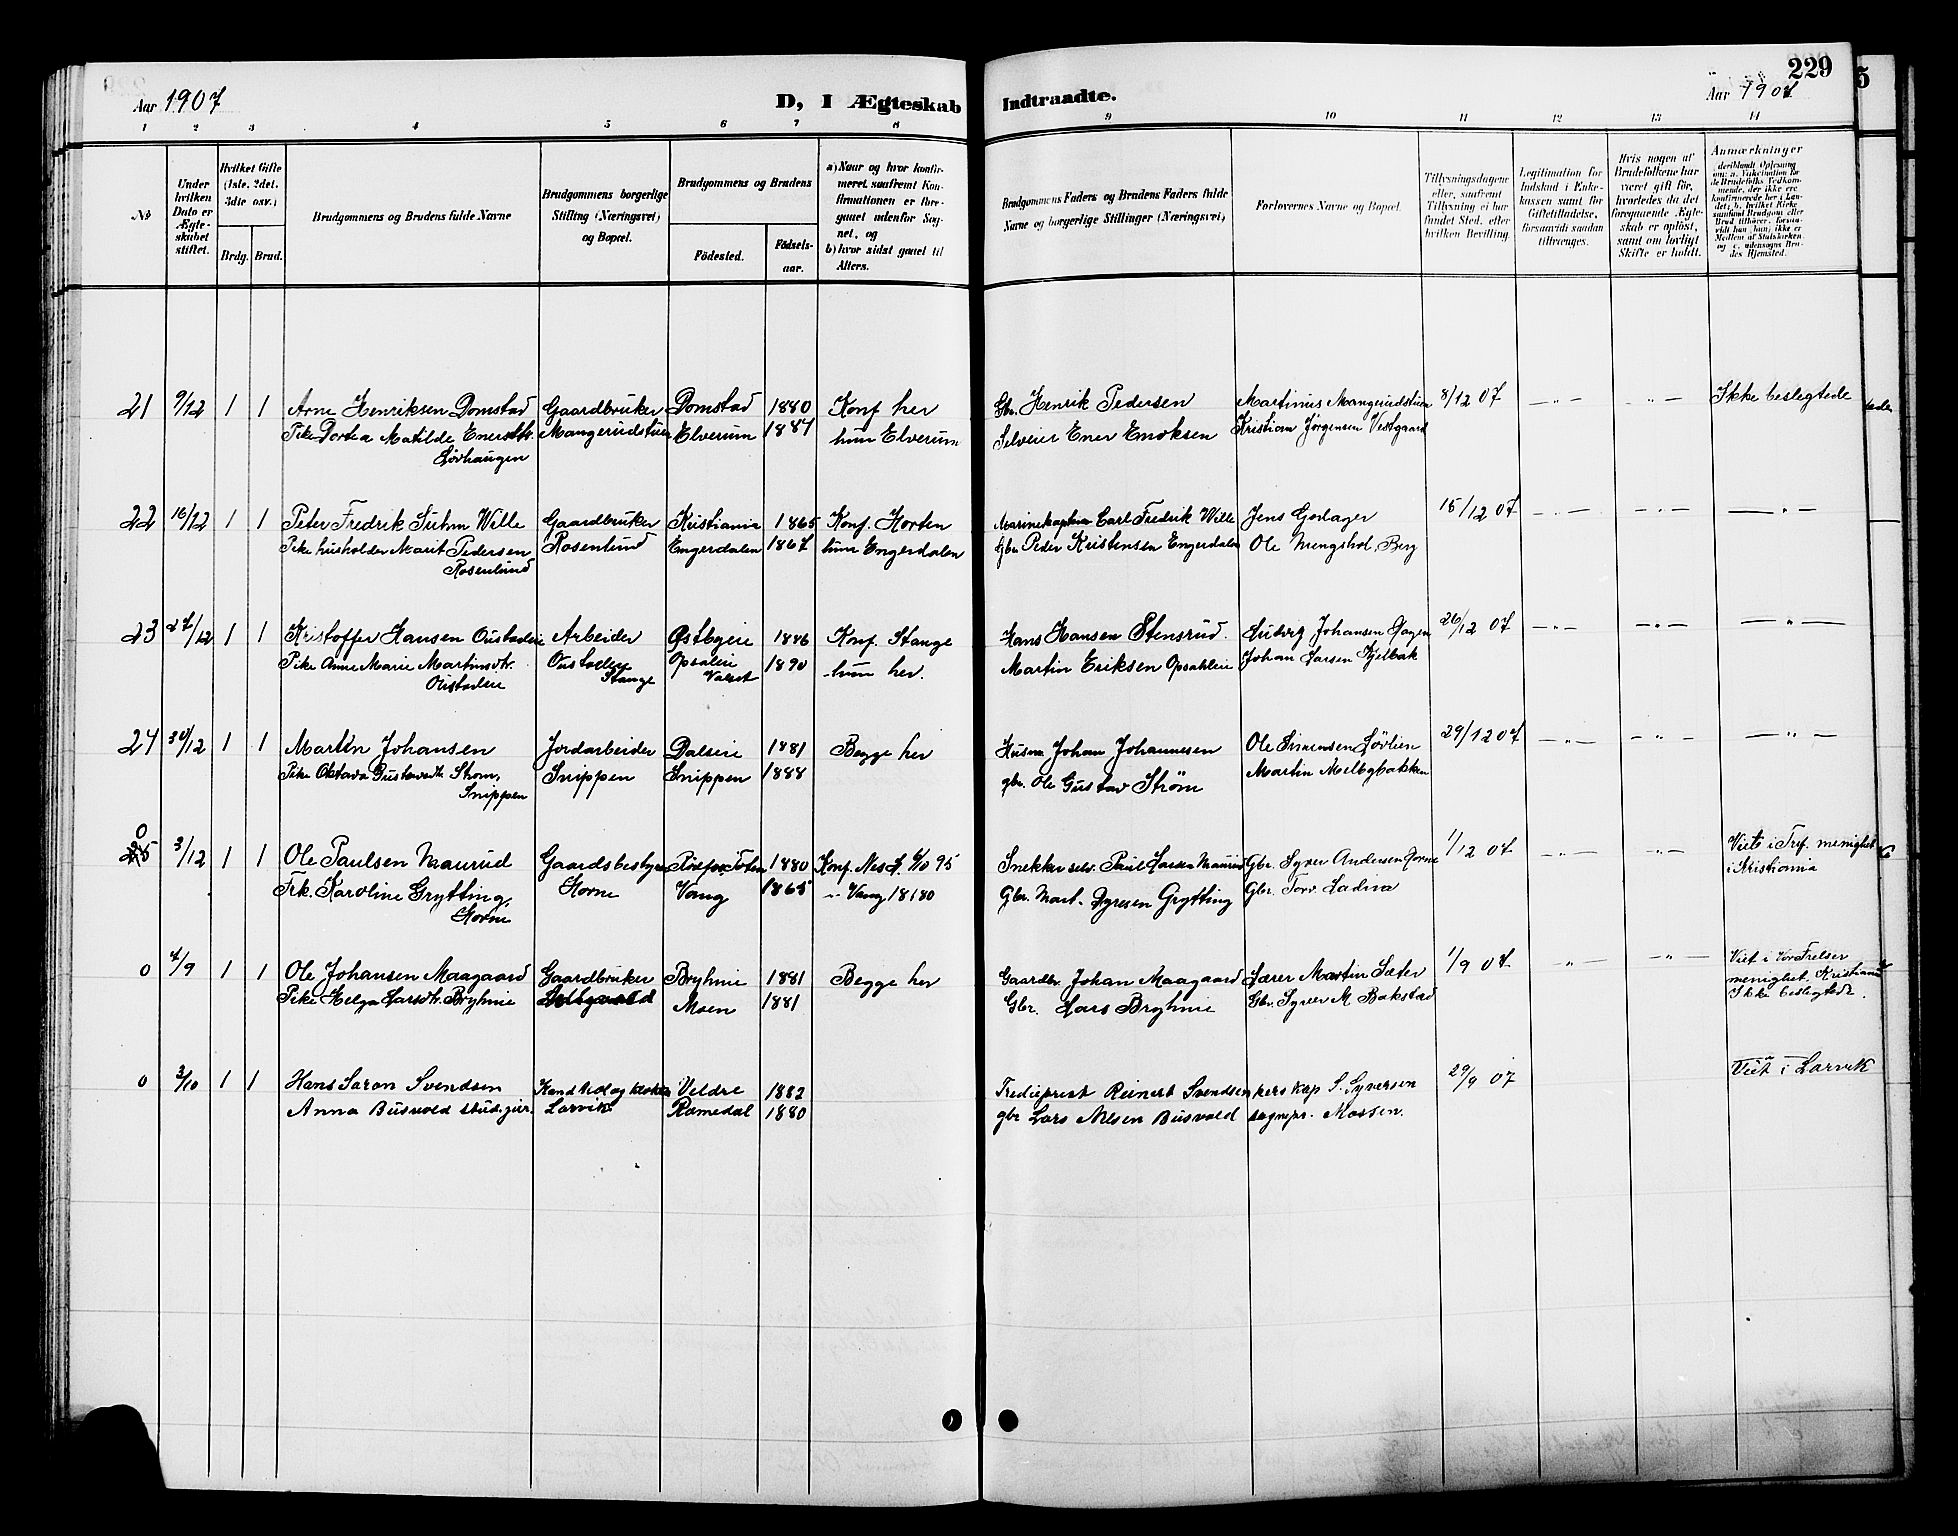 Aar 1907
D, I Ægteskab Indtraadte.
229
Aar 1907
5
1 2 3 4 5 6 7 8 9 10 11 12 13 14
№
Under hvilken Dato er Ægteskabet stiftet.
Hvilket Gifte (1ste, 2det, 3dte osv.)
Brdg. Brud.
Brudgommens og Brudens fulde Navne
Brudgommens borgerlige Stilling (Næringsvei) og Bopæl.
Brudgommens og Brudens
Födested. Födsels-aar.
a) Naar og hvor konfirmeret, saafremt Konfirmationen er foregaaet udenfor Sognet, og
b) hvor sidst gaaet til Alters.
Brudgommens Faders og Brudens Faders fulde Navne og borgerlige Stillinger (Næringsvei)
Forlovernes Navne og Bopæl.
Tillysningsdagene eller, saafremt Tillysning ei har fundet Sted, efter hvilken Bevilling.
Legitimation for Indskud i Enkekassen samt for Giftetilladelse, forsaavidt saadan tiltrænges.
Hvis nogen af Brudefolkene har været gift för, hvorledes da det foregaaende Ægteskab er oplöst, samt om lovligt Skifte er holdt.
Anmærkninger
21 9/12 1 1 Arne Henriksen Domstad Gaardbruker Domstad 1880 Konf her Gbr. Henrik Pedersen Martinus Mangerudstuen 8/12 07 — „ — — „ — Ikke beslegtede
Pike Dortea Matilde Enersdtr. Mangerudstuen Elverum 1887 hun Elverum Selveier Ener Enoksen Kristian Jørgensen Vestgaard
Løvhaugen
22 16/12 1 1 Peter Fredrik Suhm Wille Gaardbruker Kristiania 1865 Konf. Horten Marinekaptein Carl Fredrik Wille Jens Godager 15/12 07 — „ — — „ — — „ —
Pike husholder Marit Pedersen Rosenlund Engerdalen 1867 hun Engerdalen Gbr Peder Kristensen Engerdalen Ole Mengshol, Berg
Rosenlund
23 27/12 1 1 Kristoffer Hansen Oustadeie Arbeider Østbyeie 1886 Konf. Stange Hans Hansen Stensrud. Ludvig Johansen Hagen 26/12 07 — „ — — „ — — „ —
Pike Anne Marie Martinsdtr. Oustadeie Opsaleie 1890 hun her. Martin Eriksen Opsahleie Johan Larsen Kjelbak
Oustadeie Stange Valset
24 30/12 1 1 Martin Johansen Jordarbeider Dalseie 1881 Begge her Husm Johan Johannesen Ole Simensen Løvlien 29/12 07 — „ — — „ — — „ —
Pike Oktava Gustavsdtr Strøm, Snippen Snippen 1888 gbr. Ole Gustav Strøm Martin Melbybakken
Snippen
0
25 3/12 1 1 Ole Paulsen Maurud Gaardsbestyrer Toten 1880 Konf. Nes 95 Snekker selv. Paul Larsen Maurud Gbr. Syver Andersen Horne 1/12 07 — „ — — „ — Viets i Trf. menighet
Frk. Karoline Grytting, Horne Vang 1865 — Vang 1880 Gbr. Mart. Grytting Gbr. Torv. i Kristiania
Horne
0 4/9 1 1 Ole Johansen Maagaard Gaardbruker Bryhnie 1881 Begge her Gaardbr. Johan Maagaard Lærer Martin Sæter 1/9 07 — „ — — „ — Viet i Vor Frelser
Pike Helga Larsdtr. Bryhnie Moen 1881 Gbr. Lars Bryhnie Gbr. Syver M Bakstad menighet. Kristiania
Ikke beslegtede.
0 3/10 1 1 Hans Saron Svendsen Kand theol og klokker Veldre 1882 Tredieprest Reinert Svendsen kers kap S. Syversen 29/9 07 Viet i Larvik
Anna Busvold stud.gjer. Larvik Romedal 1880 gbr Lars Nilsen Busvold sognepr. Mossen.